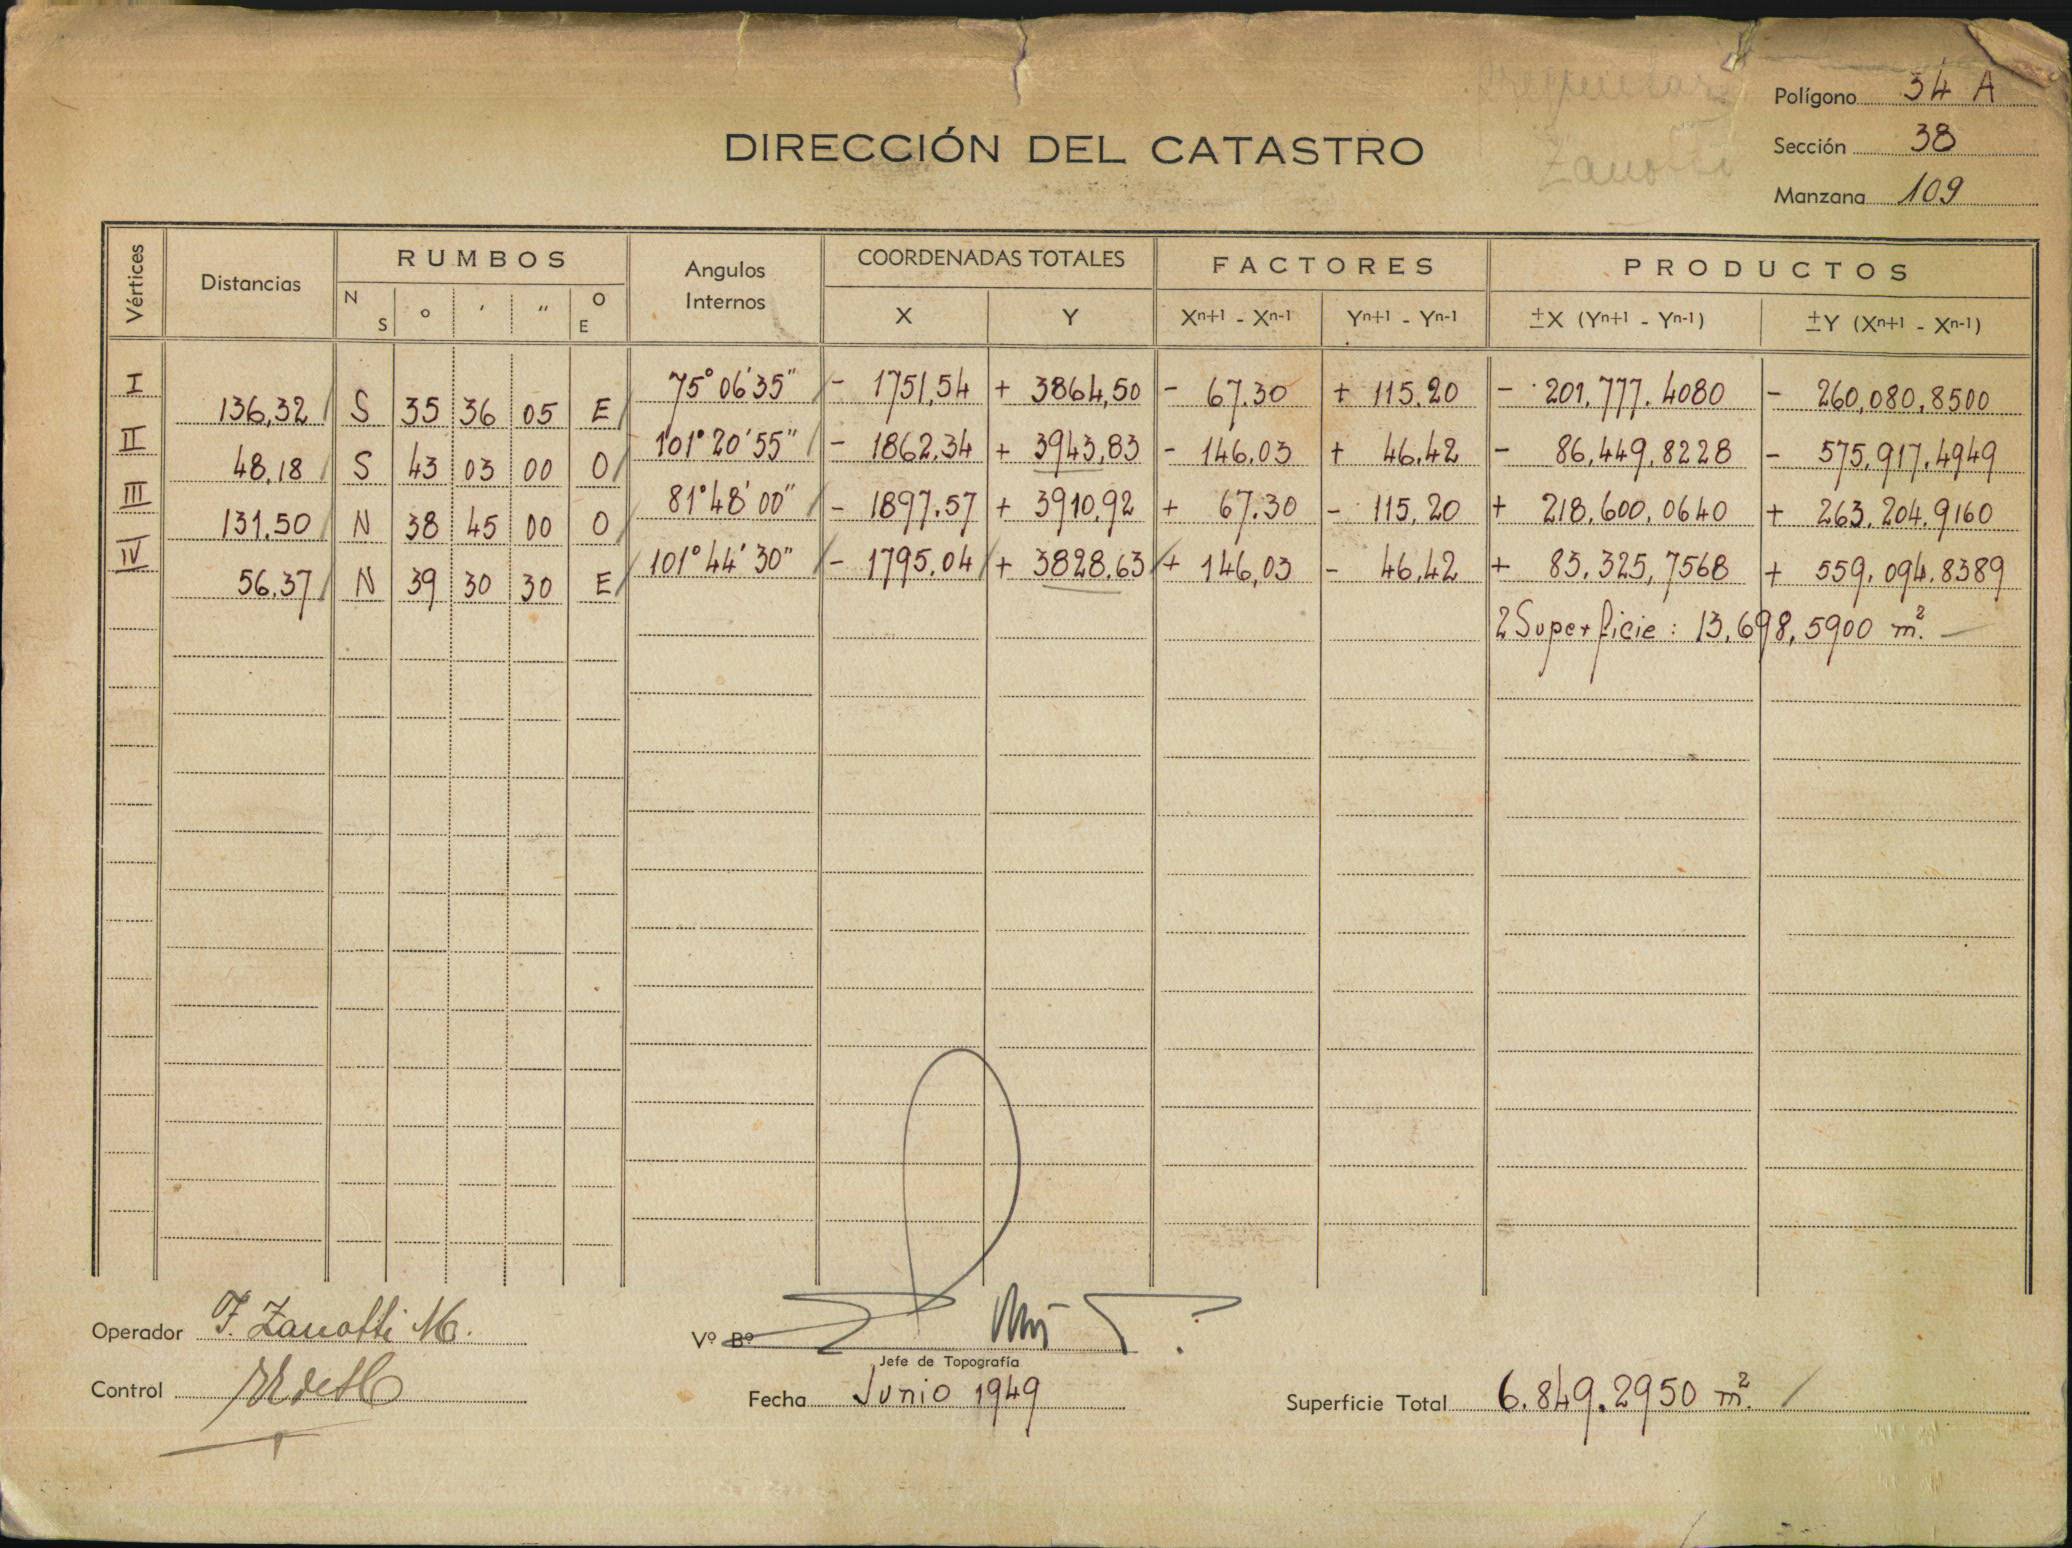 Polígono 34 A
DIRECCIÓN DEL CATASTRO
Zanotti
Sección 38
Manzana 109
Vértices Distancias RUMBOS Angulos Internos COORDENADAS TOTALES FACTORES PRODUCTOS
N S ° ' " O E X Y Xn+1 - Xn-1 Yn+1 - Yn-1 ±X (Yn+1 - Yn-1) ±Y (Xn+1 - Xn-1)
I 75° 06' 35" - 1751,54 + 3864,50 - 67.30 + 115.20 - 201,777.4080 - 260,080,8500
136,32 S 35 36 05 E
II 101° 20' 55" - 1862.34 + 3943,83 - 146.03 + 46.42 - 86,449,8228 - 575,917.4949
48,18 S 43 03 00 O
III 81° 48' 00" - 1897.57 + 3910,92 + 67.30 - 115,20 + 218.600,0640 + 263.204.9160
131.50 N 38 45 00 O
IV 101° 44' 30" - 1795.04 + 3828.63 + 146,03 - 46.42 + 83.325,7568 + 559.094.8389
56.37 N 39 30 30 E
2 Superficie: 13,698,5900 m².
Operador F. Zanotti M.
Vº Bº
Jefe de Topografía
Control
Fecha Junio 1949
Superficie Total 6.849.2950 m².